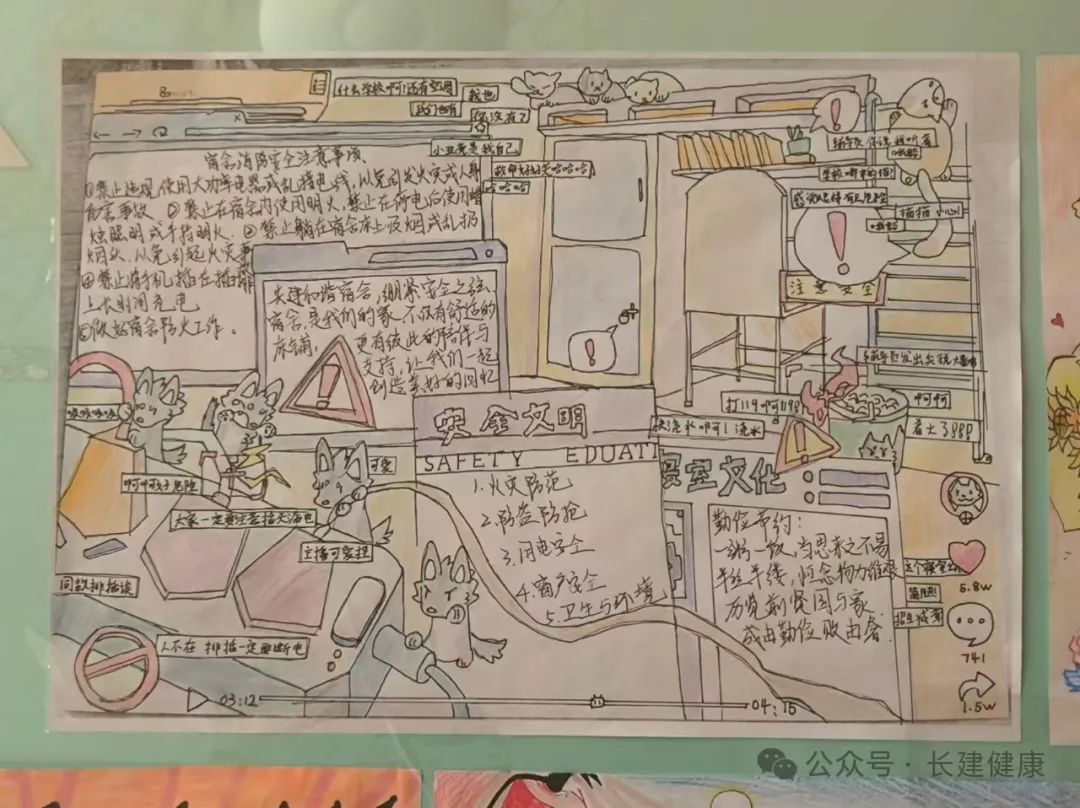 什么学校啊!还有空调
我也
我们也有
你没有了
小丑竟是我自己
宿舍消防安全注意事项
①禁止违规使用大功率电器或乱接电线,以免引发火灾或人身
伤害事故 ②禁止在宿舍内使用明火,禁止在停电后使用蜡
烛照明或手持明火. ③禁止躺在宿舍床上吸烟或乱扔
烟头.以免引起火灾事
④禁止将手机插在插排
上长时间充电
⑤做好宿舍防火工作。
哈哈哈
共建和谐宿舍,绷紧安全之弦.
宿舍,是我们的家,不仅有舒适的
床铺,更有彼此的陪伴与
支持,让我们一起
创造美好的回忆
注意安全
打119啊119
快浇水啊!浇水
啊啊
着火了
咳咳咳咳
可爱
大家一定要注意插头漏电
主播可爱捏
人不在 排插一定要断电
安全文明
SAFETY EDUATI
1.火灾防范
2.防盗防抢
3.用电安全
4.窗户安全
5.卫生与环境
寝室文化
勤俭节约:
一粥一饭,当思来之不易
半丝半缕,恒念物力维艰
历览前贤国与家
成由勤俭败由奢.
5.8w
741
1.5w
03:12
04:15
公众号·长建健康